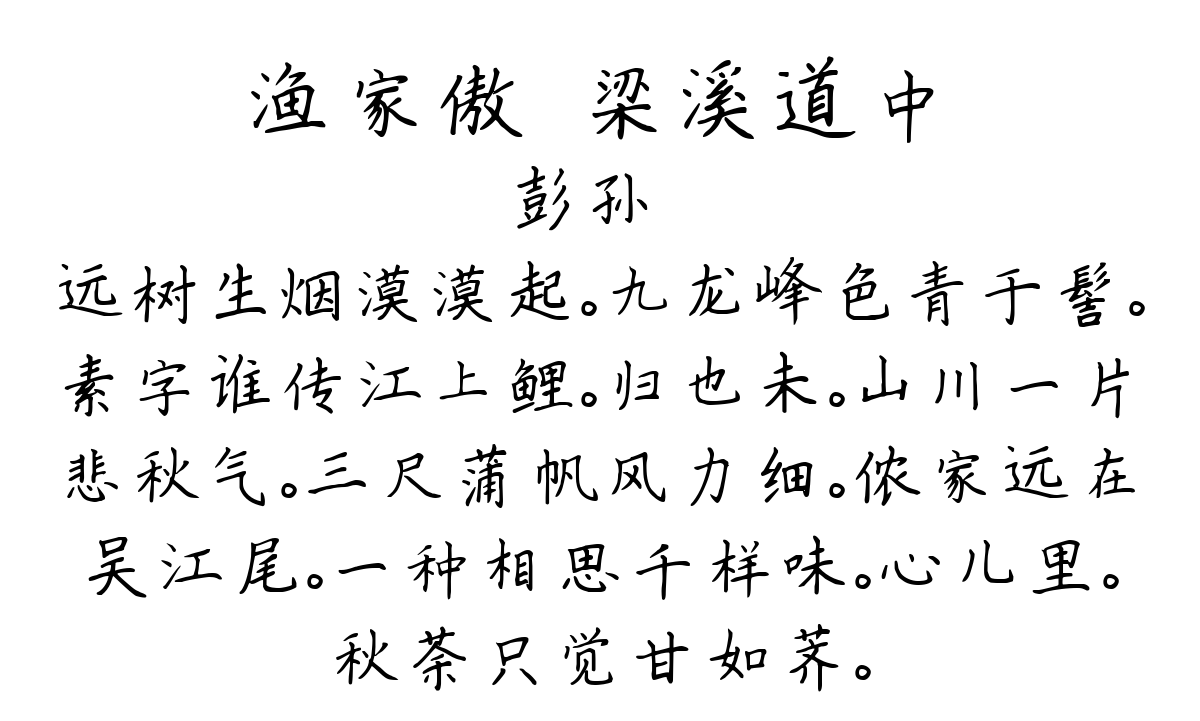 渔家傲 梁溪道中
彭孙
远树生烟漠漠起。九龙峰色青于髻。
素字谁传江上鲤。归也未。山川一片
悲秋气。三尺蒲帆风力细。侬家远在
吴江尾。一种相思千样味。心儿里。
秋荼只觉甘如荠。